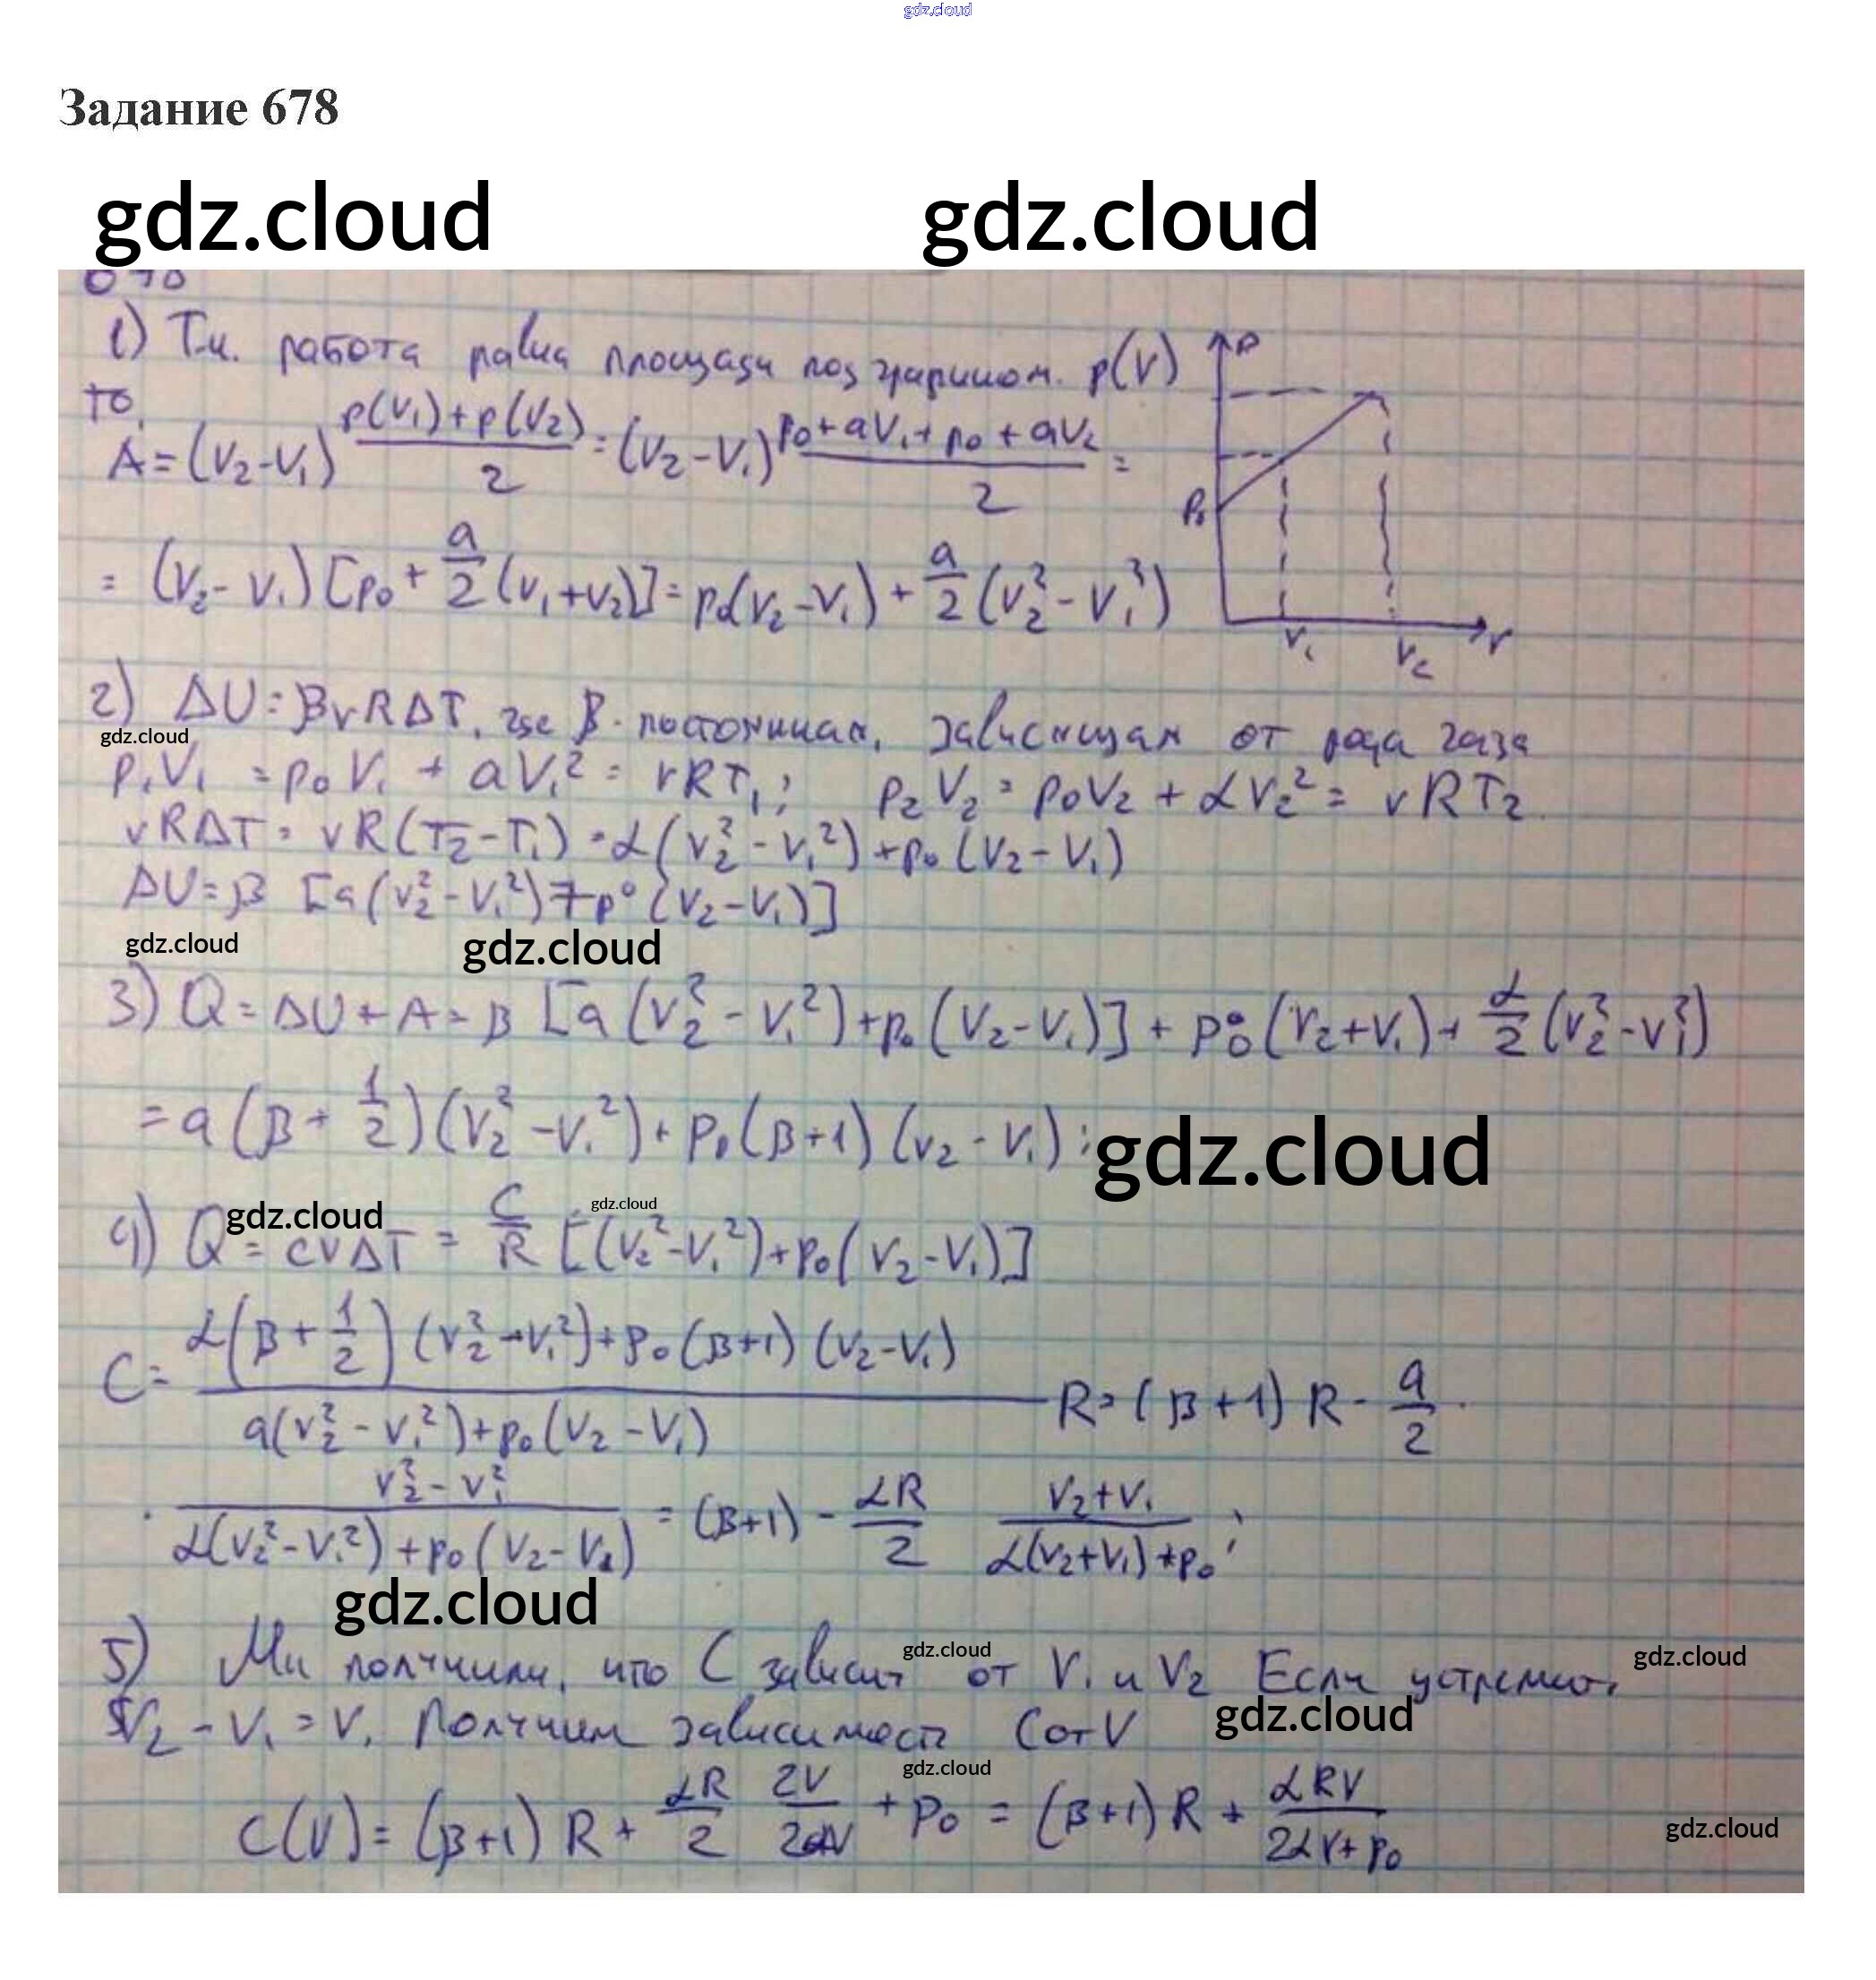 gdz.cloud
Задание 678
gdz.cloud gdz.cloud
678
1) Т.к. работа равна площади под графиком p(V)
то
A = (V₂-V₁) (p(V₁)+p(V₂))/2 = (V₂-V₁) (p₀+aV₁+p₀+aV₂)/2 =
= (V₂-V₁)[p₀+a/2(V₁+V₂)] = p₀(V₂-V₁) + a/2(V₂²-V₁²)
p
P₀
V₁ V₂ V
2) ΔU = βνRΔT, где β - постоянная, зависящая от рода газа
gdz.cloud
p₁V₁ = p₀V₁ + aV₁² = νRT₁; p₂V₂ = p₀V₂ + αV₂² = νRT₂
νRΔT = νR(T₂-T₁) = α(V₂²-V₁²)+p₀(V₂-V₁)
ΔU = β [a(V₂²-V₁²)+p₀(V₂-V₁)]
gdz.cloud gdz.cloud
3) Q = ΔU + A = β [a(V₂²-V₁²)+p₀(V₂-V₁)] + p₀(V₂+V₁)+ α/2(V₂²-V₁²)
= a(β+1/2)(V₂²-V₁²)+p₀(β+1)(V₂-V₁);
gdz.cloud
gdz.cloud gdz.cloud
4) Q = cνΔT = C/R [(V₂²-V₁²)+p₀(V₂-V₁)]
C = (α(β+1/2)(V₂²-V₁²)+p₀(β+1)(V₂-V₁))/(a(V₂²-V₁²)+p₀(V₂-V₁)) R = (β+1)R - a/2 ·
· (V₂²-V₁²)/(α(V₂²-V₁²)+p₀(V₂-V₁)) = (β+1) - αR/2 (V₂+V₁)/(α(V₂+V₁)+p₀);
gdz.cloud
5) Мы получили, что C зависит от V₁ и V₂ Если устремить
gdz.cloud gdz.cloud
V₂ - V₁ = V, получим зависимость C от V
gdz.cloud
gdz.cloud
C(V) = (β+1)R + αR/2 2V/2αV + p₀ = (β+1)R + αRV/(2αV+p₀)
gdz.cloud